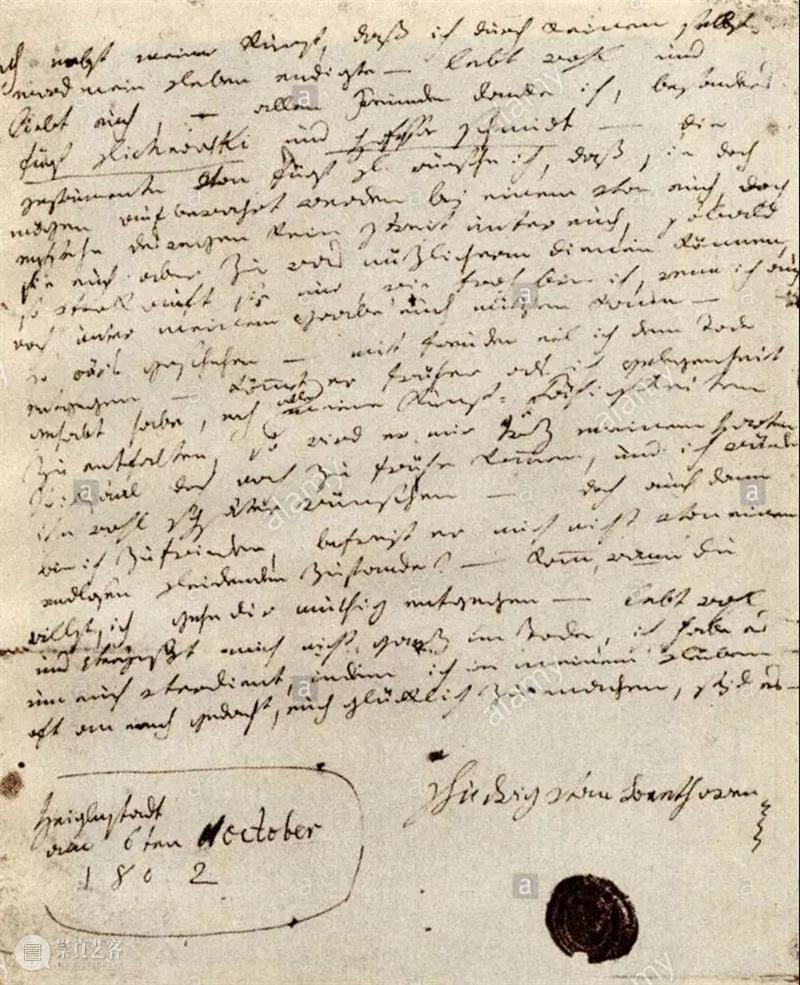 nebst meiner Kunst, daß ich durch keinen selbst
mord mein Leben endigte — lebt wohl und
liebt euch, — allen Freunden danke ich, besonders
fürst Lichnowski und Professor schmidt — die
Instrumente von fürst L. wünsche ich, daß sie doch
mögen aufbewahrt werden bej einem von euch, doch
entstehe deswegen kein streit unter euch, sobald
sie euch aber zu was nüzlicherm dienen können,
so verkauft sie nur, wie froh bin ich, wenn ich auch
noch unter meinem Grabe euch nüzen kann —
so wärs geschehen — mit freuden eil ich dem Tode
entgegen — kömmt er früher als ich gelegenheit
gehabt habe, noch alle meine Kunst-Fähigkeiten
zu entfalten, so wird er mir troz meinem Harten
Schicksaal doch noch zu frühe kommen, und ich würde
ihn wohl später wünschen — doch auch dann
bin ich zufrieden, befreit er mich nicht von einem
endlosen Leidenden Zustande? — Komm, wann du
willst, ich gehe dir muthig entgegen — lebt wohl
und Vergeßt mich nicht ganz im Tode, ich habe es
um euch verdient, indem ich in meinem Leben
oft an euch gedacht, euch glücklich zu machen, seyd es —
Ludwig van Beethoven
Heiglnstadt
am 6ten october
1802
alamy
崇真艺客